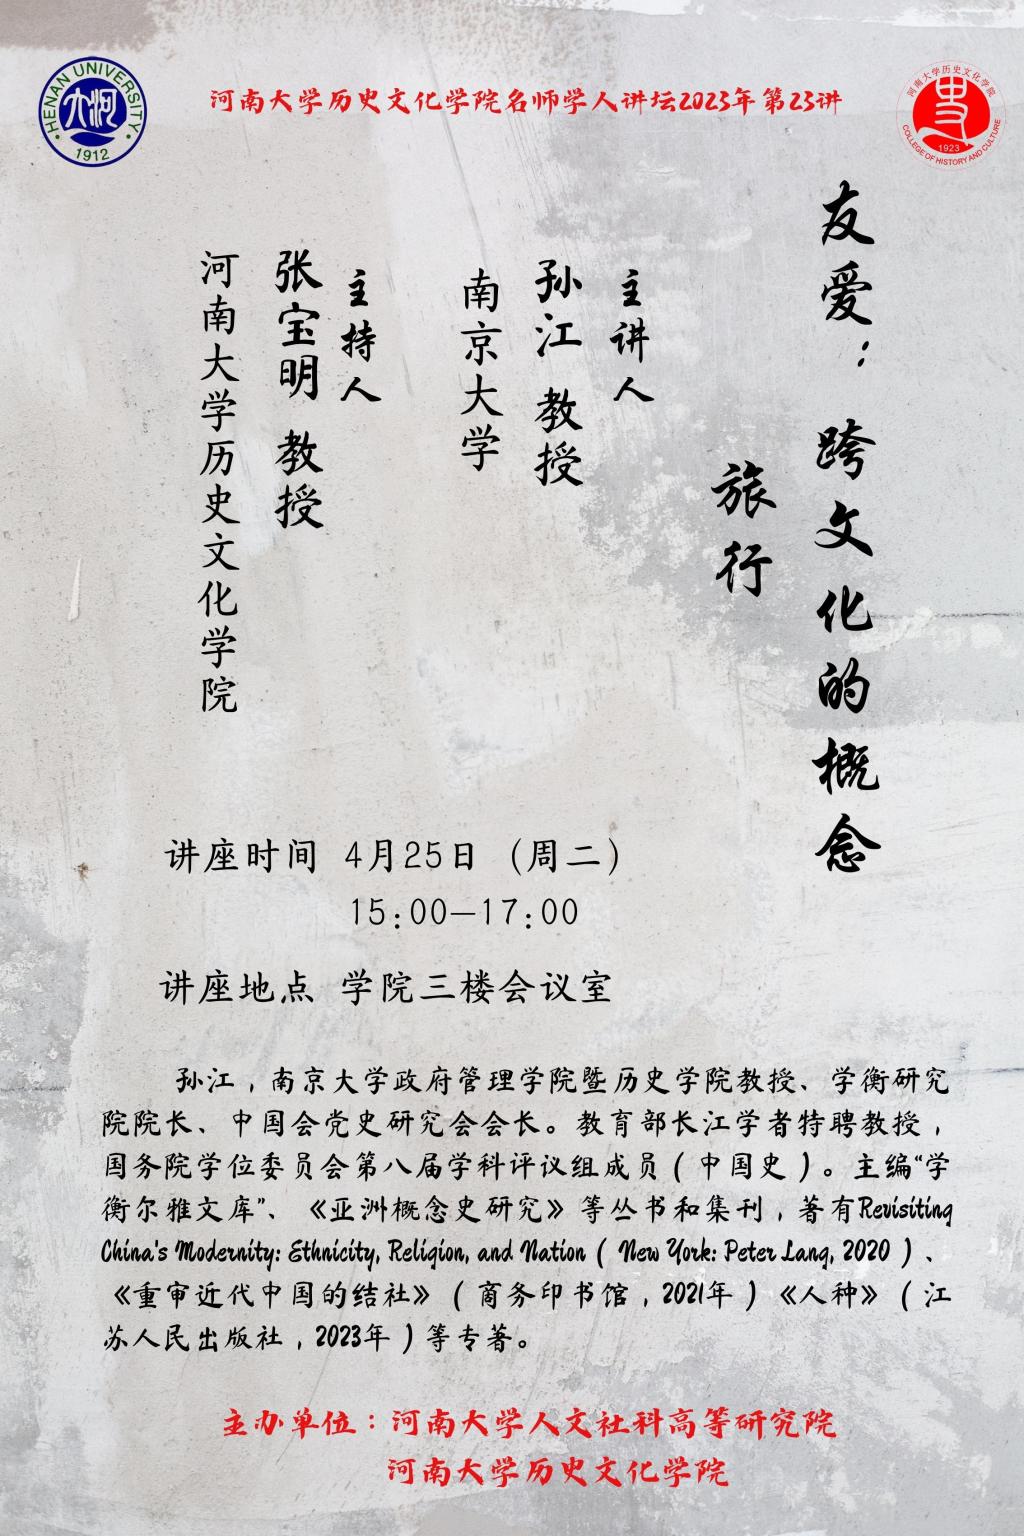 河南大学历史文化学院名师学人讲坛2023年第23讲
HENAN UNIVERSITY
大河
1912
河南大学历史文化学院
史
1923
COLLEGE OF HISTORY AND CULTURE
友爱：跨文化的概念
旅行
主讲人
孙江 教授
南京大学
主持人
张宝明 教授
河南大学历史文化学院
讲座时间 4月25日（周二）
15:00—17:00
讲座地点 学院三楼会议室
孙江，南京大学政府管理学院暨历史学院教授、学衡研究
院院长、中国会党史研究会会长。教育部长江学者特聘教授，
国务院学位委员会第八届学科评议组成员（中国史）。主编“学
衡尔雅文库”、《亚洲概念史研究》等丛书和集刊，著有Revisiting
China's Modernity: Ethnicity, Religion, and Nation（New York: Peter Lang, 2020）、
《重审近代中国的结社》（商务印书馆，2021年）《人种》（江
苏人民出版社，2023年）等专著。
主办单位：河南大学人文社科高等研究院
河南大学历史文化学院